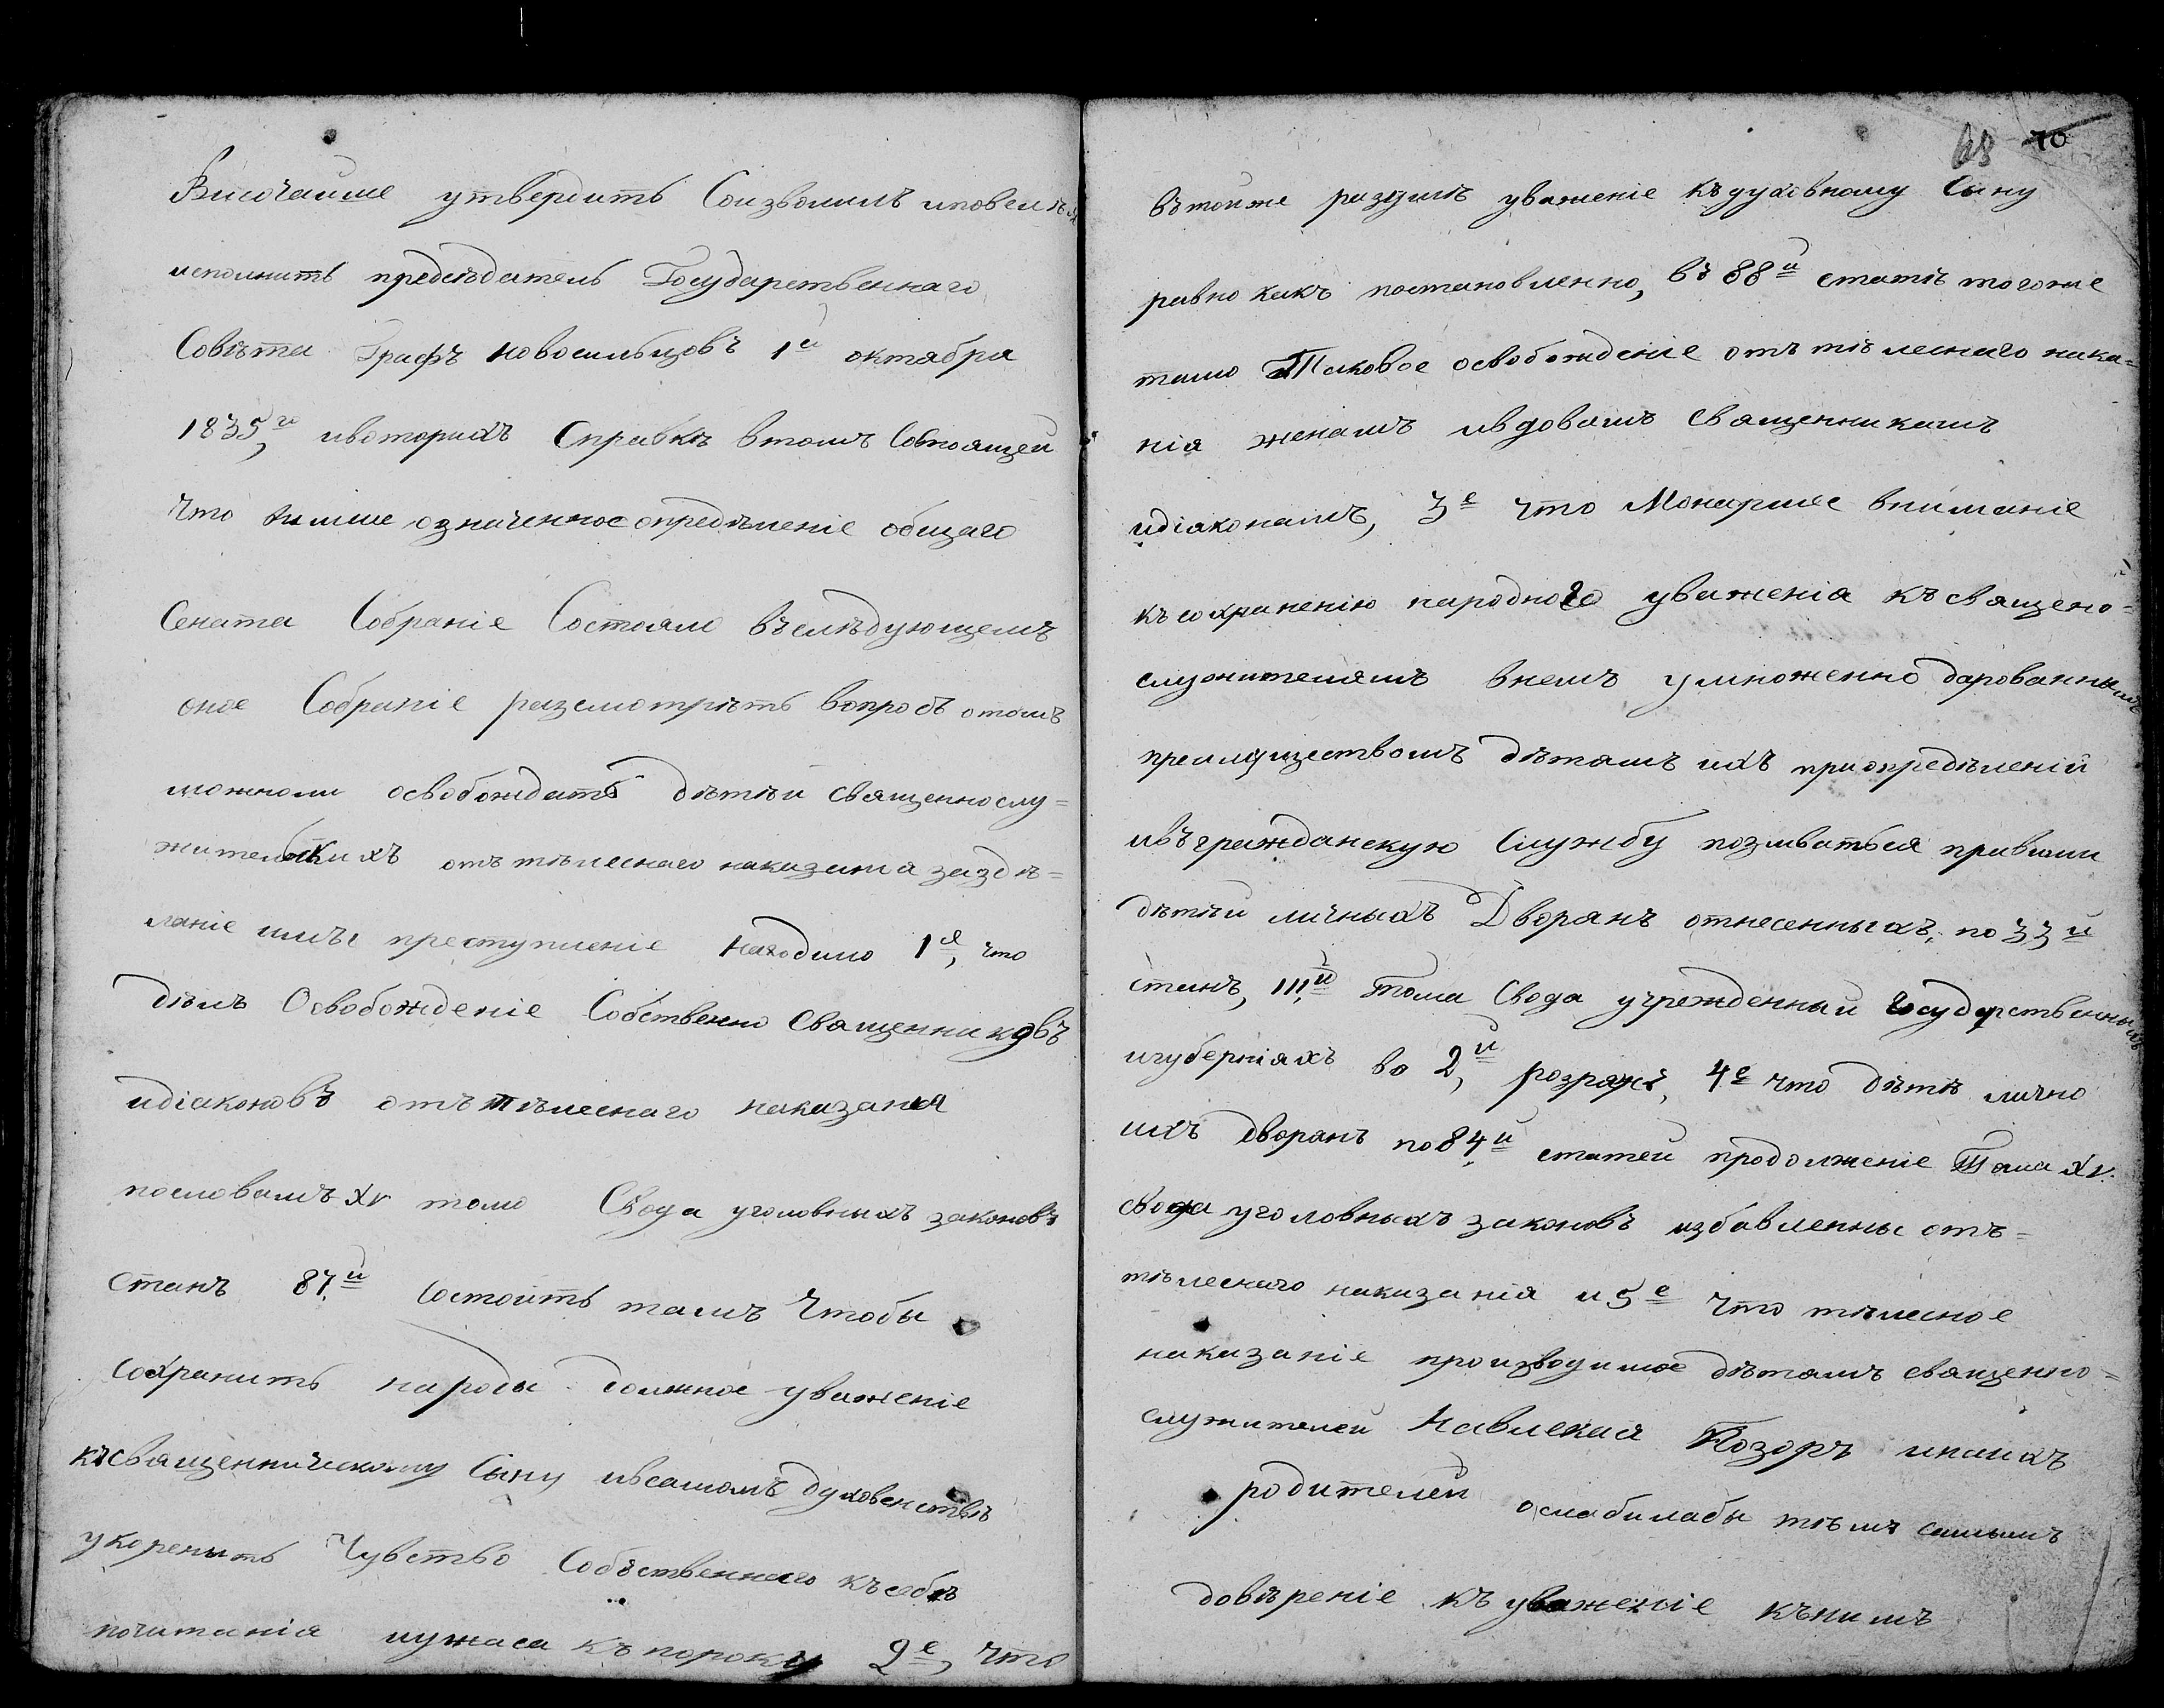 Височаише утвердить Соизволилъ иповелѣлъ
исполнить предсѣдатель Государственнаго
Совѣта Графъ Новосильцовъ 1й октября
1835,го ивоторихъ Справкѣ втомъ Состоящей
что выше означенное опредѣленіе общаго
Сената Собраніе Состояло въслѣдующемъ
оное Собраніе разсмотрѣть вопросъ отомъ
можноли освобождать дѣтѣи священнослу=
жительскихъ отъ тѣлеснаго наказанія заздѣ=
ланіе имъ преступленіе находило 1е, что
дѣлъ Освобожденіе Собственно Священниковъ
идіаконовъ отъ тѣлеснаго наказанія
пословамъ XV томо Свода уголовныхъ законовъ
станъ 87й Состоитъ тамъ Чтобы
сохранить народы должное уваженіе
късвященническому Сыну ивсамомъ духовенствѣ
укоренить Чувство Собственнаго късебѣ
почитанія иужаса къ пороку 2е, что
68 70
вътойже разумѣ уваженіе къдуховному Сыну
равно какъ постановленно, въ 88й статіѣ тогоже
томо Таковое освобожденіе отъ тѣлеснаго нака=
нія женамъ ивдовамъ священникамъ
идіаконамъ, 3е что Монаршее вниманіе
къ сохраненію народного уваженія късвящено=
служителямъ внемъ умноженно дарованнымъ
преимуществомъ дѣтямъ ихъ приопредѣленій
ивъгражданскую Службу пользиваться правами
дѣтѣй личныхъ Дворянъ отнесенныхъ, по 33й
станъ, III,й тома Свода учрежденнай государственныхъ
игуберніяхъ во 2,й розряжѣ, 4е что дѣтѣ лично
ихъ дворянъ по 84й статей продолженіе Тома XV.
свода уголовныхъ законовъ избавленны отъ=
тѣлеснаго наказанія и 5е что тѣлесное
наказаніе производимое дѣтямъ священно=
служителей Навлекая Позоръ инаихъ
родителей ослабилабы тѣмъ самымъ
довѣреніе къ уваженіе кънимъ